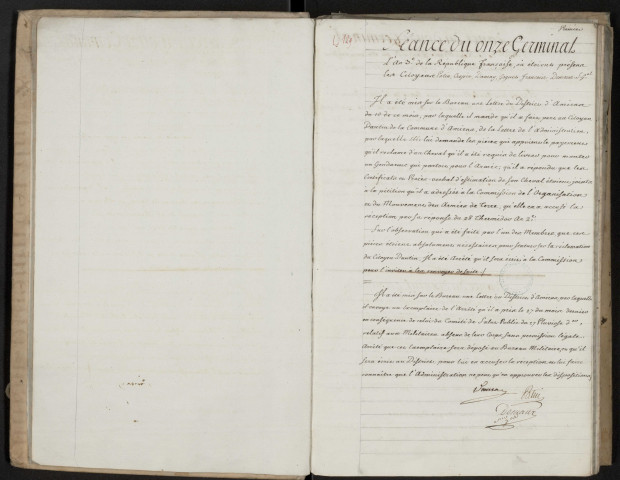 Séance du onze Germinal
L'An 3e de la République française, où étoient présens
les Citoyens
Il a été mis sur le Bureau une Lettre du District d'Amiens
du de ce mois, par laquelle il mande qu'il a fait part au Citoyen
Dantin de la Commune d'Amiens, de la Lettre de l'Administration,
par laquelle elle lui demande les pièces qui appuient le payement
qu'il réclame d'un Cheval qu'il a été requis de livrer pour monter
un Gendarme qui partoit pour l'Armée; qu'il a répondu que les
Certificats et Procès-verbal d'estimation de son Cheval étoient joints
à la pétition qu'il a adressée à la Commission de l'Organisation
et du Mouvement des Armées de Terre, qu'elle en a accusé la
réception par sa réponse du 28 Thermidor An 2e.
Sur l'observation qui a été faite par l'un des Membres que ces
pièces étoient absolument nécessaires pour statuer sur la réclamation
du Citoyen Dantin. Il a été Arrêté qu'il sera écrit à la Commission
pour l'inviter à les renvoyer de suite /
Il a été mis sur le Bureau une Lettre du District d'Amiens, par laquelle
il envoye un exemplaire de l'Arrêté qu'il a pris le 27 du mois dernier
en conséquence de celui du Comité de Salut Public du 27 Pluviose d.er,
relatif aux Militaires absens de leurs Corps sans permission légale
Arrêté que cet Exemplaire sera déposé au Bureau Militaire, et qu'il
sera écrit au District pour lui en accuser la réception et lui faire
connoître que l'Administration ne peut qu'en approuver les dispositions